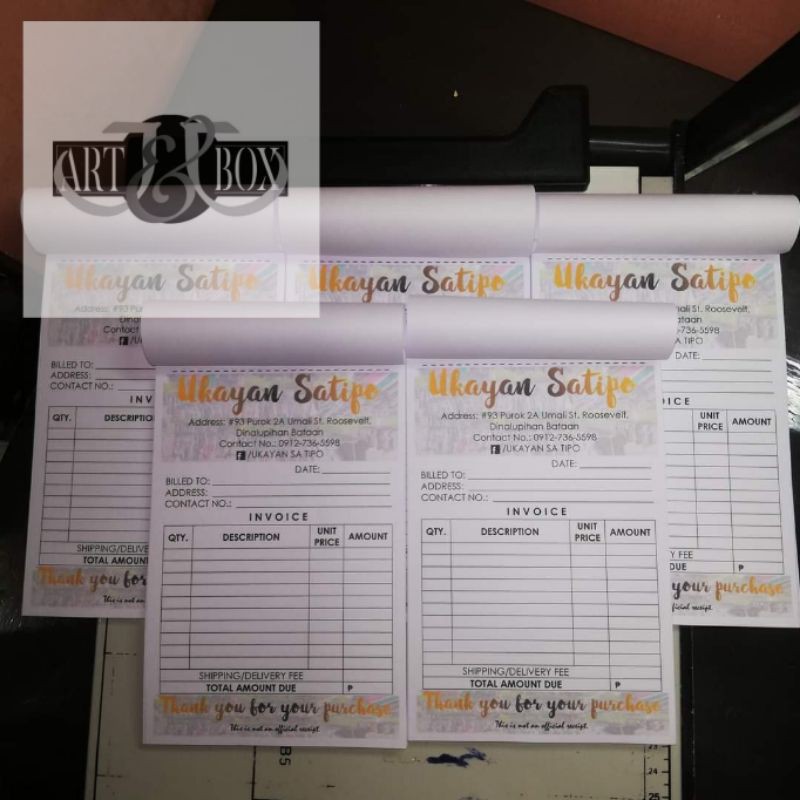 ART & BOX
Ukayan Satipo
Address: #93 Pur
Dinal
Contact
/U
BILLED TO:
ADDRESS:
CONTACT NO.:
INV
QTY. DESCRIPTIO
SHIPPING/DELIVE
TOTAL AMOUNT
Thank you for
This is not an
Ukayan Satipo
Ukayan Satipo
mali St. Roosevelt,
ataan
-736-5598
A TIPO
DATE:
OICE
UNIT PRICE AMOUNT
Y FEE
DUE ₱
your purchase
official receipt.
Ukayan Satipo
Address: #93 Purok 2A Umali St. Roosevelt,
Dinalupihan Bataan
Contact No.: 0912-736-5598
/UKAYAN SA TIPO
DATE:
BILLED TO:
ADDRESS:
CONTACT NO.:
INVOICE
QTY. DESCRIPTION UNIT PRICE AMOUNT
SHIPPING/DELIVERY FEE
TOTAL AMOUNT DUE ₱
Thank you for your purchase
This is not an official receipt.
Ukayan Satipo
Address: #93 Purok 2A Umali St. Roosevelt,
Dinalupihan Bataan
Contact No.: 0912-736-5598
/UKAYAN SA TIPO
DATE:
BILLED TO:
ADDRESS:
CONTACT NO.:
INVOICE
QTY. DESCRIPTION UNIT PRICE AMOUNT
SHIPPING/DELIVERY FEE
TOTAL AMOUNT DUE ₱
Thank you for your purchase
This is not an official receipt.
B5
23
24
25